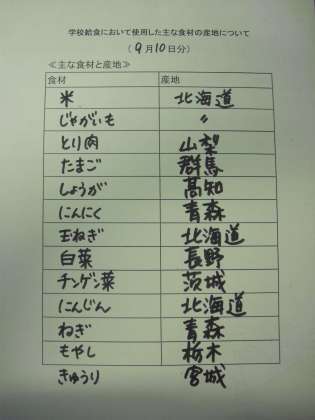 学校給食において使用した主な食材の産地について
(9月10日分)
≪主な食材と産地≫
食材 産地
米 北海道
じゃがいも 〃
とり肉 山梨
たまご 群馬
しょうが 高知
にんにく 青森
玉ねぎ 北海道
白菜 長野
チンゲン菜 茨城
にんじん 北海道
ねぎ 青森
もやし 栃木
きゅうり 宮城